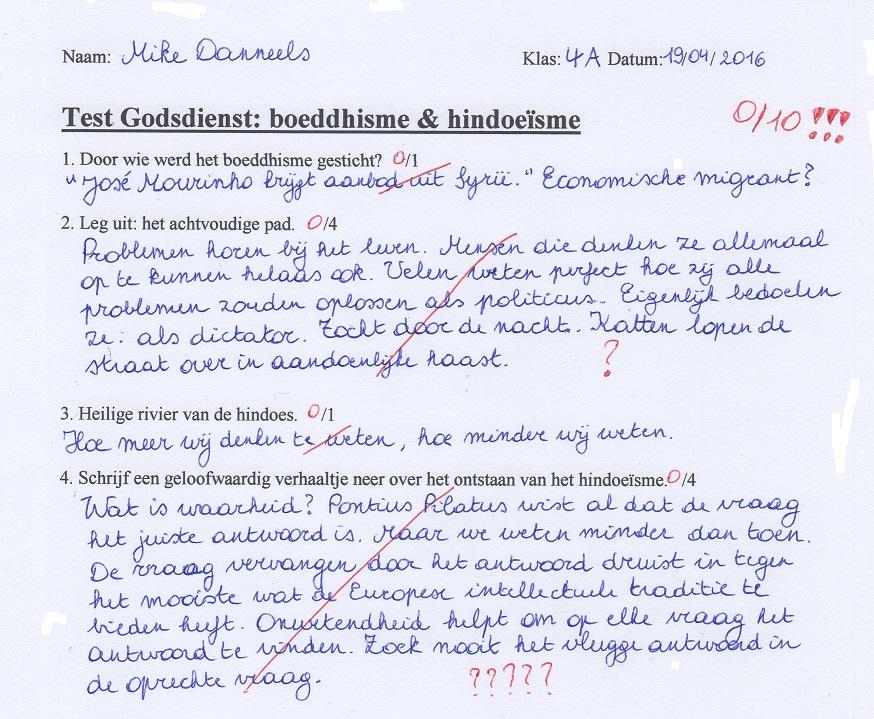 Naam: Mike Danneels Klas: 4A Datum: 19/04/2016
Test Godsdienst: boeddhisme & hindoeïsme 0/10 !!!
1. Door wie werd het boeddhisme gesticht? 0/1
"José Mourinho krijgt aanbod uit Syrië." Economische migrant?
2. Leg uit: het achtvoudige pad. 0/4
Problemen horen bij het leven. Mensen die denken ze allemaal
op te kunnen helaas ook. Velen weten perfect hoe zij alle
problemen zouden oplossen als politicus. Eigenlijk bedoelen
ze: als dictator. Zocht door de nacht. Katten lopen de
straat over in aandoenlijke haast. ?
3. Heilige rivier van de hindoes. 0/1
Hoe meer wij denken te weten, hoe minder wij weten.
4. Schrijf een geloofwaardig verhaaltje neer over het ontstaan van het hindoeïsme. 0/4
Wat is waarheid? Pontius Pilatus wist al dat de vraag
het juiste antwoord is. Maar we weten minder dan toen.
De vraag vervangen door het antwoord druist in tegen
het mooiste wat de Europese intellectuele traditie te
bieden heeft. Onwetendheid helpt om op elke vraag het
antwoord te vinden. Zoek nooit het vlugge antwoord in
de oprechte vraag. ?????